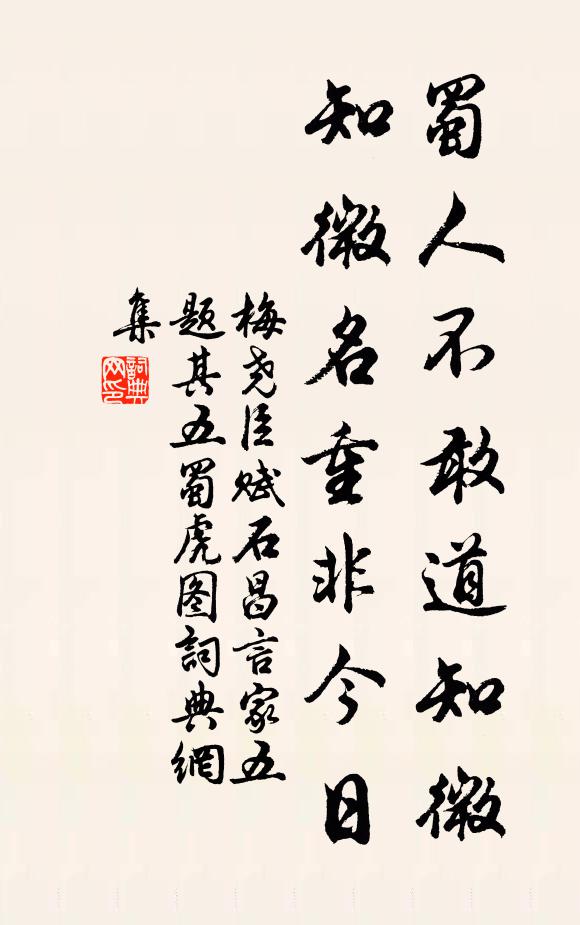 蜀人不敢道知微
知微名重非今日
梅尧臣赋石昌言家五
题其五蜀虎图詞典網
集
詞典
网印